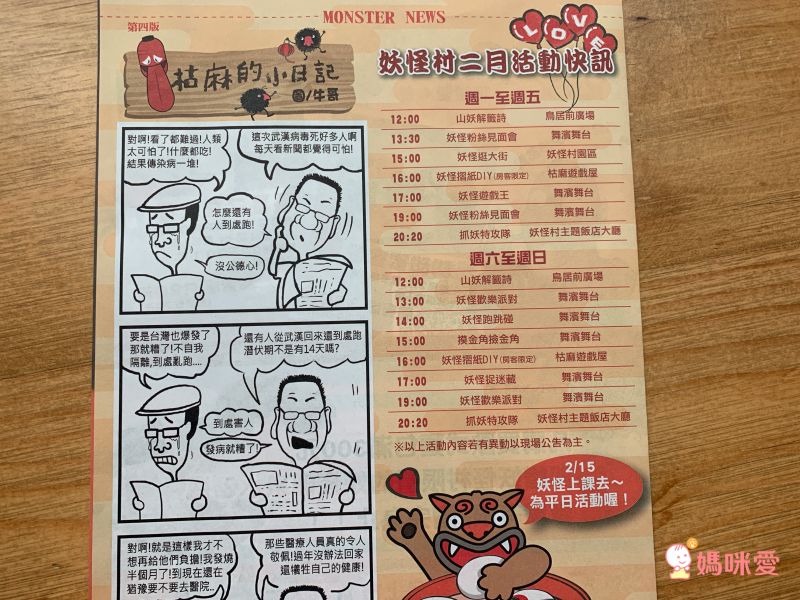 MONSTER NEWS
第四版
枯麻的小日記
圖/牛哥
對啊!看了都難過!人類
太可怕了!什麼都吃!
結果傳染病一堆!
這次武漢病毒死好多人啊
每天看新聞都覺得可怕!
怎麼還有
人到處跑!
沒公德心!
要是台灣也爆發了
那就糟了!不自我
隔離,到處亂跑....
還有人從武漢回來還到處跑
潛伏期不是有14天嗎?
到處害人
發病就糟了!
對啊!就是這樣我才不
想再給他們負擔!我發燒
半個月了!到現在還在
猶豫要不要去醫院..
那些醫療人員真的令人
敬佩!過年沒辦法回家
還犧牲自己的健康!
LOVE
妖怪村二月活動快訊
週一至週五
12:00 山妖解籤詩 鳥居前廣場
13:30 妖怪粉絲見面會 舞濱舞台
15:00 妖怪逛大街 妖怪村園區
16:00 妖怪摺紙DIY(房客限定) 枯麻遊戲屋
17:00 妖怪遊戲王 舞濱舞台
19:00 妖怪粉絲見面會 舞濱舞台
20:20 抓妖特攻隊 妖怪村主題飯店大廳
週六至週日
12:00 山妖解籤詩 鳥居前廣場
13:00 妖怪歡樂派對 舞濱舞台
14:00 妖怪跑跳碰 舞濱舞台
15:00 摸金角撿金角 舞濱舞台
16:00 妖怪摺紙DIY(房客限定) 枯麻遊戲屋
17:00 妖怪捉迷藏 舞濱舞台
19:00 妖怪歡樂派對 舞濱舞台
20:20 抓妖特攻隊 妖怪村主題飯店大廳
※以上活動內容若有異動以現場公告為主。
2/15
妖怪上課去~
為平日活動喔!
媽咪愛